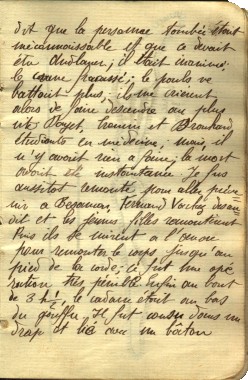 dit que la personne tombée était
méconnaissable et que ce devait
être Andlayer; il était
le crâne fracassé; le pouls ne
battait plus; il me crièrent
alors de faire descendre au plus
vite et
étudiants en médecine, mais, il
n'y avait rien à faire; la mort
avait été instantanée. Je fus
aussitôt remonté pour aller
à Besançon, Fernand
et les jeunes filles remontèrent
Puis ils se mirent à l'œuvre
pour remonter le corps jusqu'au
pied de la corde; ce fut une opé-
ration très pénible enfin au bout
de 3 h ½, le cadavre était au bas
du gouffre. Il fut cousu dans un
drap et lié avec un bâton